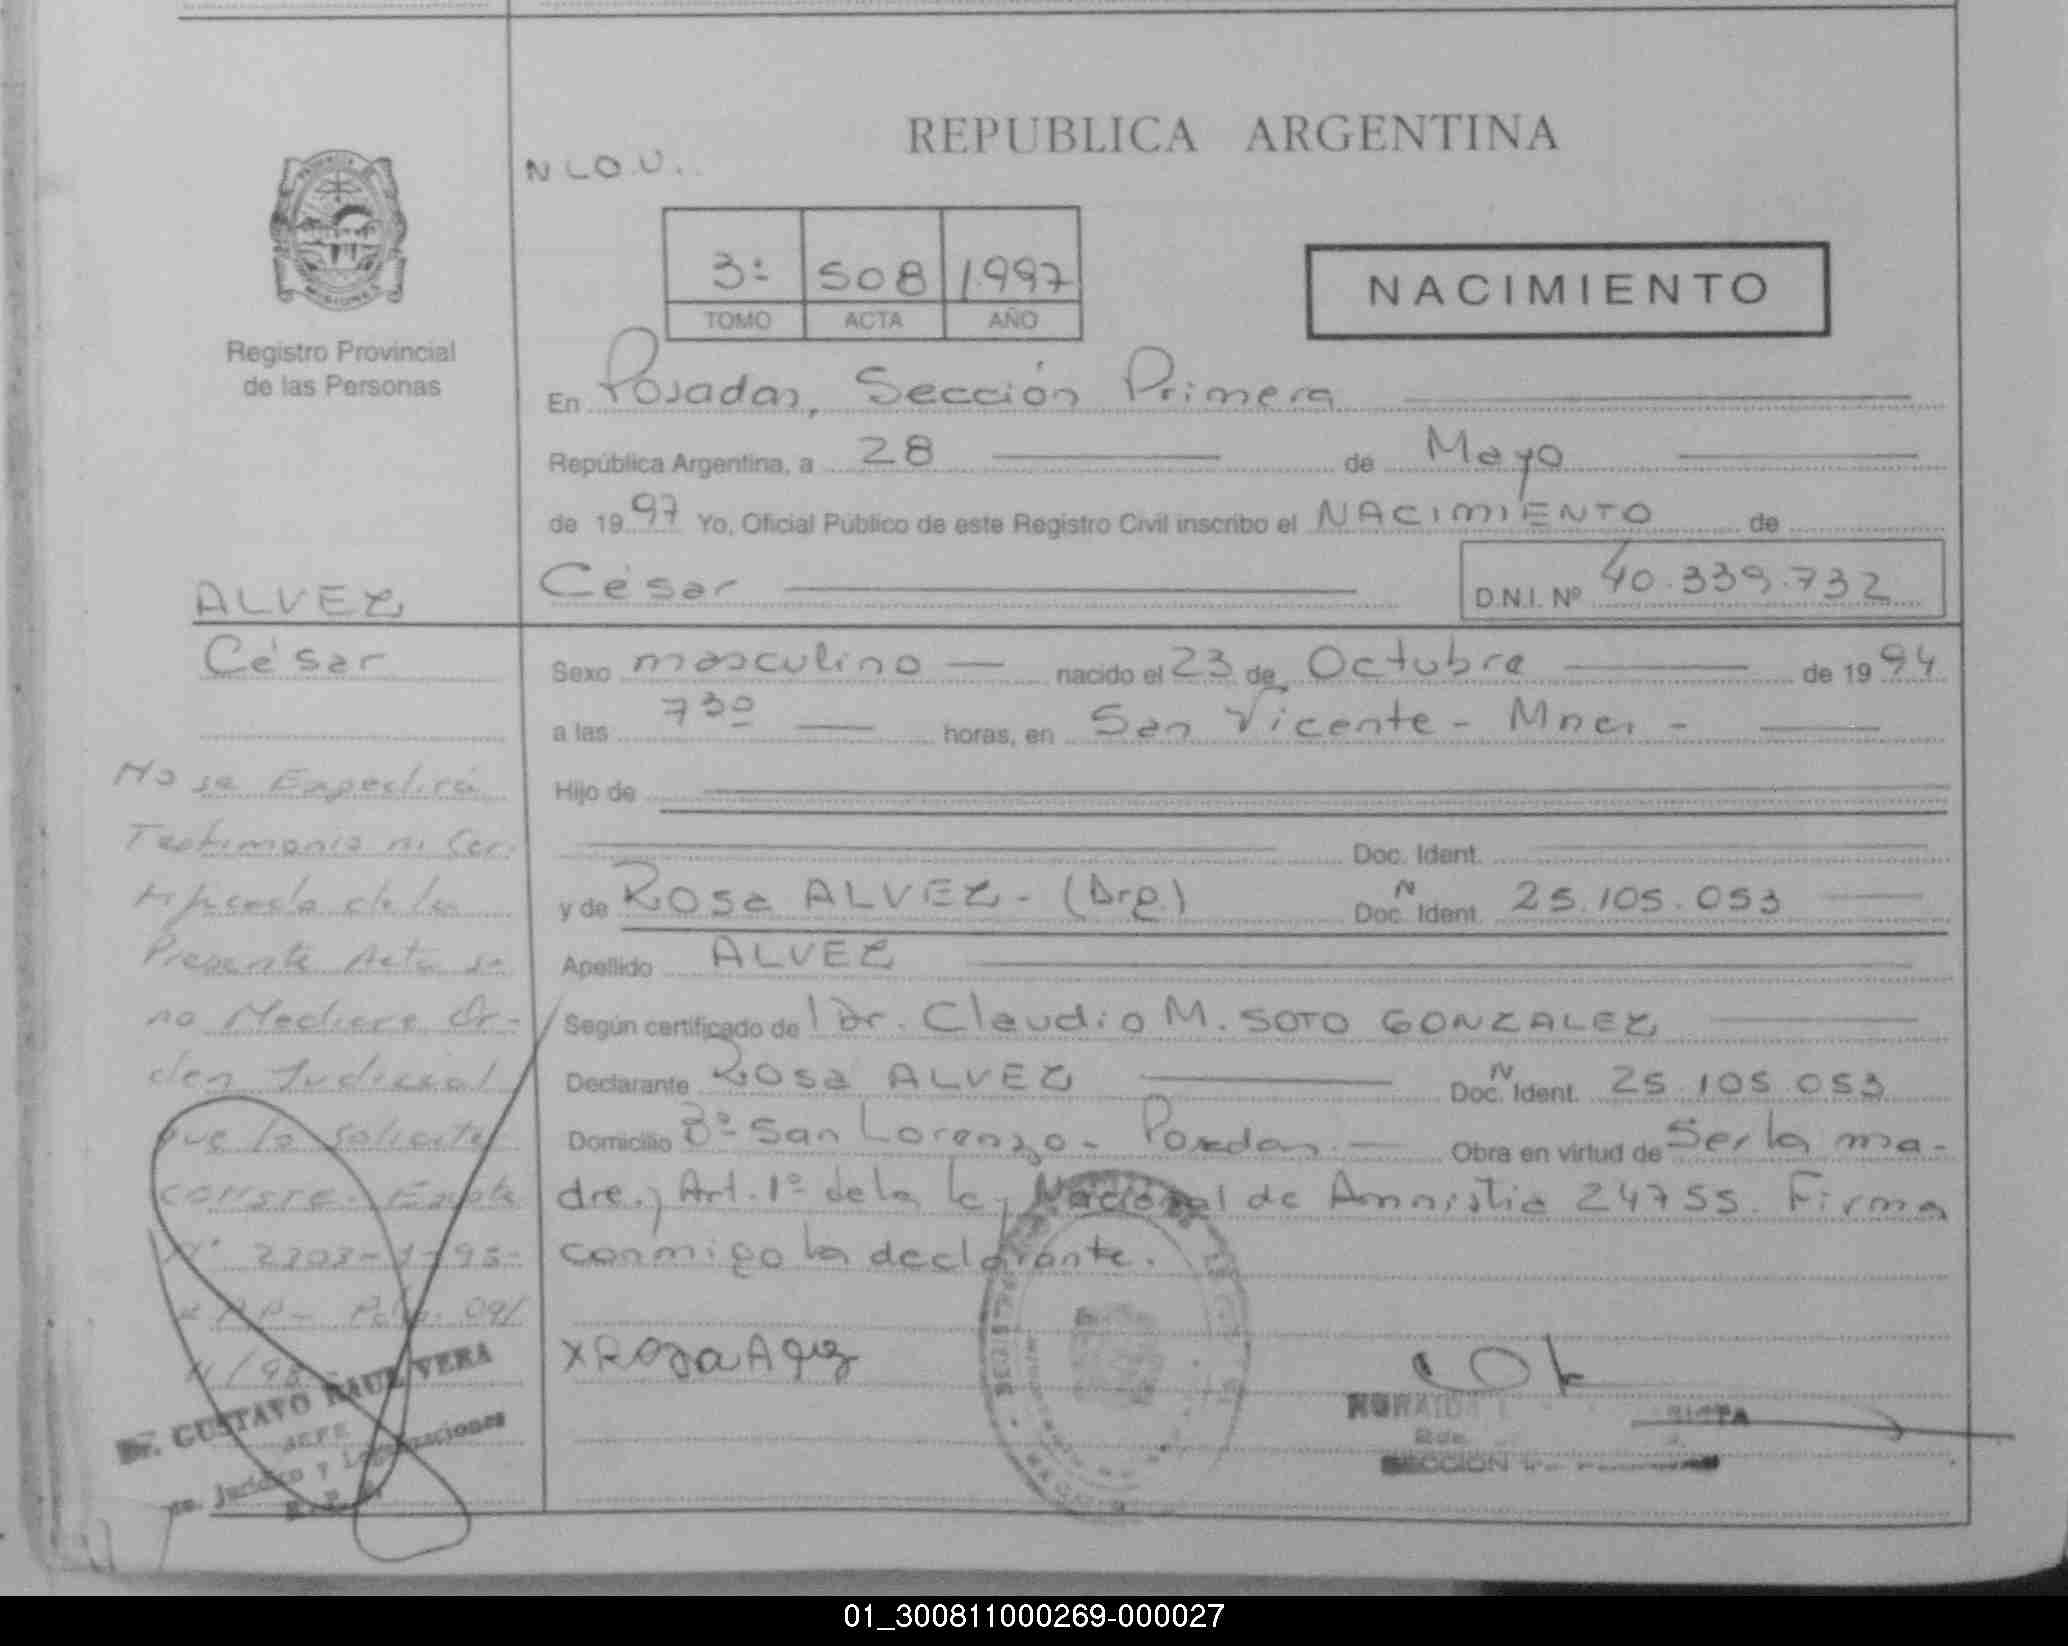 REPUBLICA ARGENTINA
N L O. U.
3º 508 1.997
TOMO ACTA AÑO
NACIMIENTO
MISIONES
Registro Provincial
de las Personas
En Posadas, Sección Primera
República Argentina, a 28 de Mayo
de 1997 Yo, Oficial Público de este Registro Civil inscribo el NACIMIENTO de
César D.N.I. Nº 40.339.732
ALVEZ
César
Sexo masculino nacido el 23 de Octubre de 1994
a las 7 30 horas, en San Vicente - Mnes -
Hijo de
Doc. Ident.
y de Rosa ALVEZ - (Arg.) N Doc. Ident. 25.105.053
Apellido ALVEZ
Según certificado de Dr. Claudio M. SOTO GONZALEZ
Declarante Rosa ALVEZ N Doc. Ident. 25.105.053
Domicilio Bº San Lorenzo - Posadas - Obra en virtud de Ser la ma-
dre, y Art. 1º de la Ley Nacional de Amnistia 24755. Firma
conmigo la declarante.
No se Expedirá
Testimonio ni Cer-
tificado de la
Presente Acta si
no Mediere Or-
den Judicial
que lo solicite
conste. Expte
Nº 2303-1-95-
R.P.P-
Dr. GUSTAVO RAUL VERA
JEFE
Jurídico y
R. P. P.
X Rosa
SECCION
01_300811000269-000027